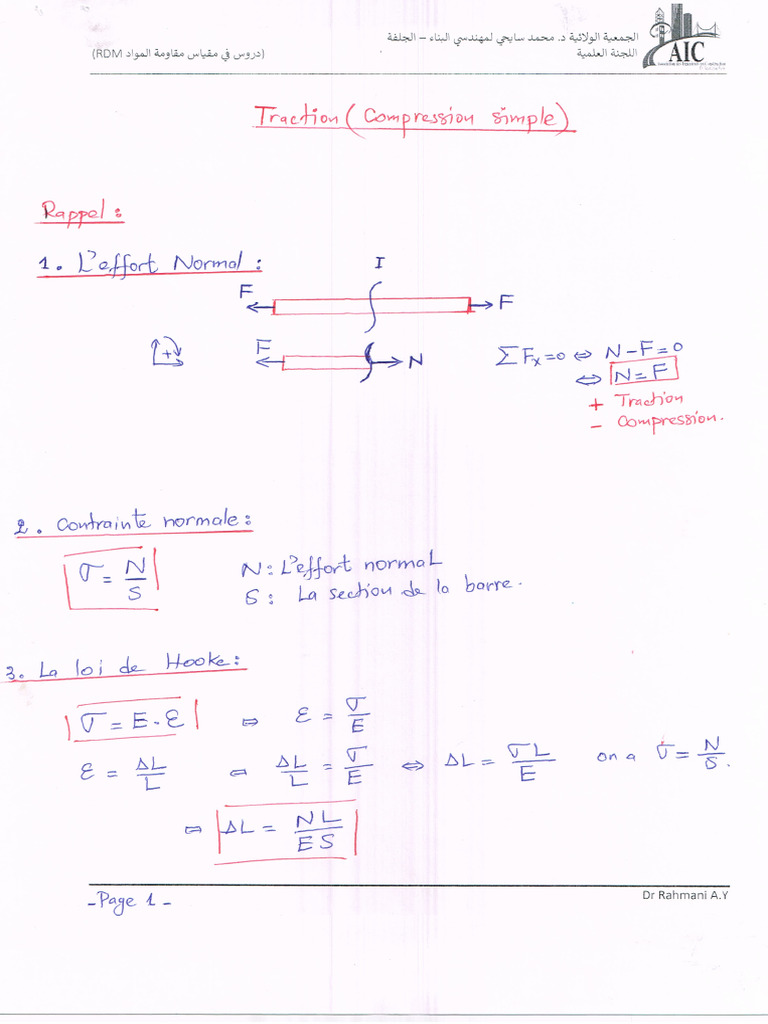 الجمعية الولائية د. محمد سايحي لمهندسي البناء – الجلفة
اللجنة العلمية
(دروس في مقياس مقاومة المواد RDM)
AIC
Traction (Compression simple)
Rappel :
1. L'effort Normal :
I
F
F
+
F
N
ΣFx=0 ⇔ N-F=0
⇔ N=F
+ Traction
- Compression.
2. Contrainte normale :
σ = N/S
N : L'effort normal
S : La section de la barre.
3. La loi de Hooke :
σ = E.ε ⇔ ε = σ/E
ε = ΔL/L ⇔ ΔL/L = σ/E ⇔ ΔL = σL/E on a σ = N/S.
⇔ ΔL = NL/ES
Dr Rahmani A.Y
-Page 1-